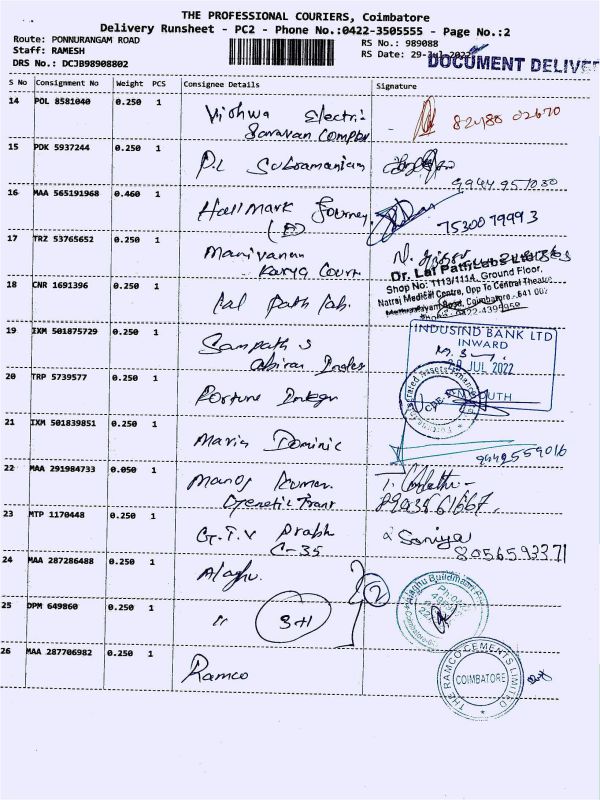 THE PROFESSIONAL COURIERS, Coimbatore
Delivery Runsheet - PC2 - Phone No.:0422-3505555 - Page No.:2
Route: PONNURANGAM ROAD
RS No.: 989088
Staff: RAMESH
RS Date: 29-Jul-2022
DRS No.: DCJB98908802
DOCUMENT DELIVER
S No Consignment No Weight PCS Consignee Details Signature
14 POL 8581040 0.250 1 Vishwa Electri
Saravan Complex
15 PDK 5937244 0.250 1 P.L Subramaniam
9944951030
16 MAA 565191968 0.460 1 Hallmark Journey
7530079993
17 TRZ 53765652 0.250 1 Manivanan
Karya Court
Dr. Lal PathLabs Ltd
Shop No: T113/1114, Ground Floor,
Natraj Medical Centre, Opp To Central Theatre
18 CNR 1691396 0.250 1 Lal Path Lab.
Coimbatore - 641 002
INDUSIND BANK LTD
INWARD
19 IXM 501875729 0.250 1 Sampath S
JUL 2022
20 TRP 5739577 0.250 1 Fortune Integr
21 IXM 501839851 0.250 1 Maria Dominic
9442559016
22 MAA 291984733 0.050 1 Manoj Kumar
23 MTP 1170448 0.250 1 G.T.V Prabh
C-35
Saniya
8056593371
24 MAA 287286488 0.250 1 Alaghu.
2
25 DPM 649860 0.250 1 " 3+1
26 MAA 287706982 0.250 1 Ramco
THE RAMCO CEMENTS LIMITED
COIMBATORE